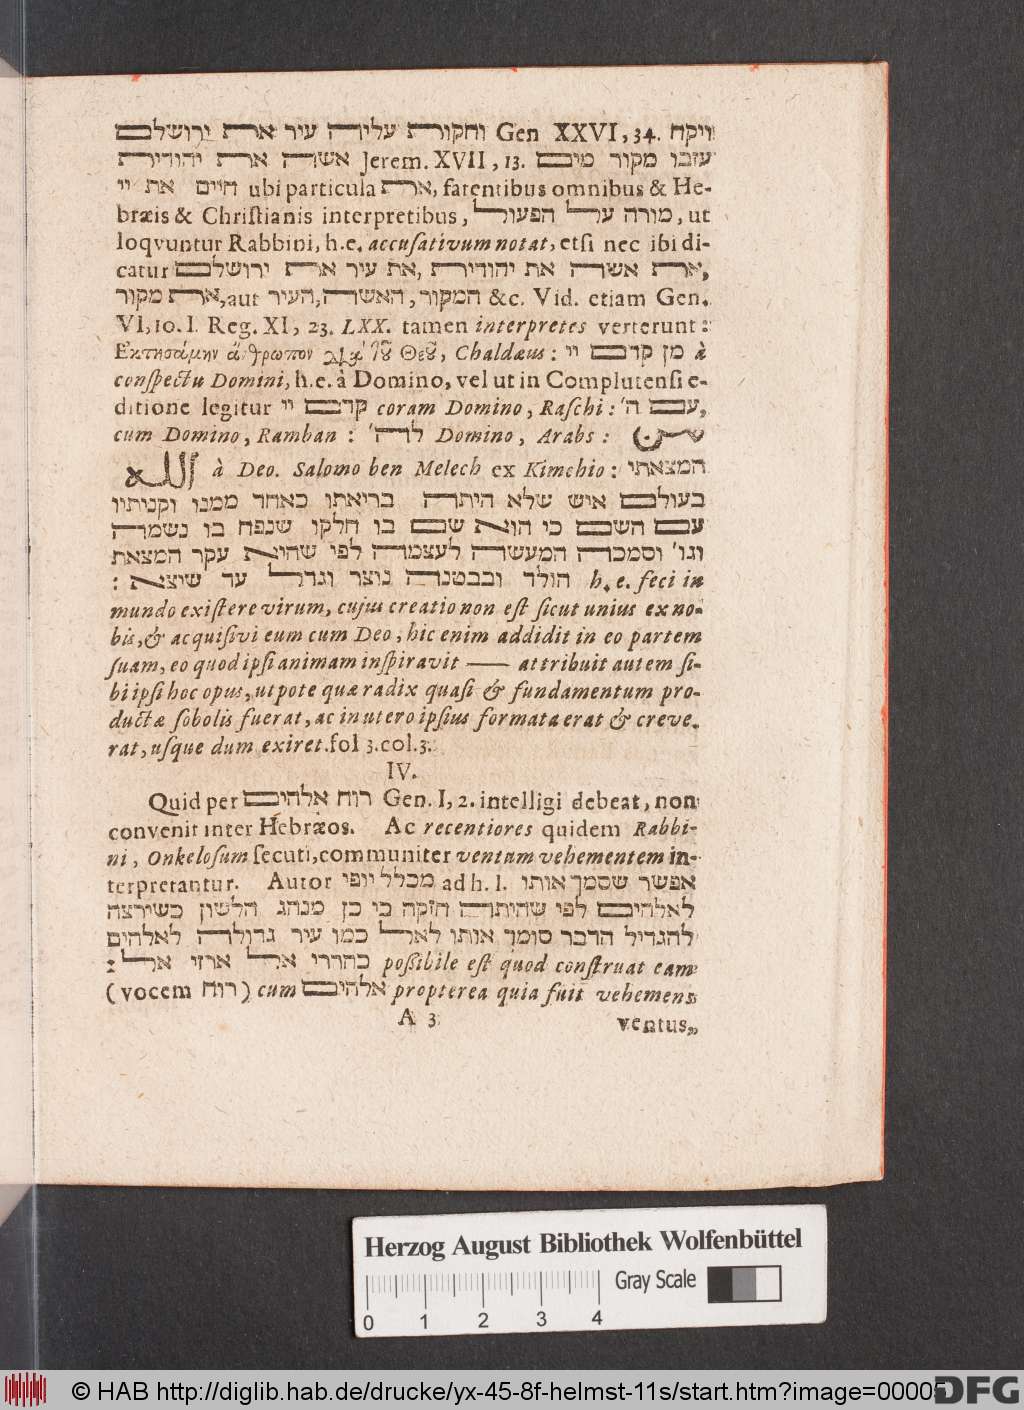 וחקות עליה עיר את ירושלם Gen XXVI, 34. ויקח
אשה את יהודית Jerem. XVII, 13. עזבו מקור מים
חיים את יי ubi particula את, fatentibus omnibus & He-
bræis & Christianis interpretibus, מורה על הפעול, ut
loqvuntur Rabbini, h.e. accusativum notat, etsi nec ibi di-
catur את אשה את יהודית, את עיר את ירושלם,
את מקור, aut המקור, האשה, העיר &c. Vid. etiam Gen.
VI, 10. I. Reg. XI, 23. LXX. tamen interpretes verterunt:
Εκτησάμην ἄνθρωπον διὰ τοῦ Θεοῦ, Chaldæus: מן קדם יי à
conspectu Domini, h.e. à Domino, vel ut in Complutensi e-
ditione legitur קדם יי coram Domino, Raschi: עם ה',
cum Domino, Ramban: לה' Domino, Arabs: من
الله à Deo. Salomo ben Melech ex Kimchio: המצאתי
בעולם איש שלא היתה בריאתו כאחד ממנו וקניתיו
עם השם כי הוא שם בו חלקו שנפח בו נשמה
וגו' וסמכה המעשה לעצמה לפי שהיא עקר המצאת
הולד ובבטנה נוצר וגדל עד שיצא: h. e. feci in
mundo existere virum, cujus creatio non est sicut unius ex no-
bis, & acquisivi eum cum Deo, hic enim addidit in eo partem
suam, eo quod ipsi animam inspiravit —— attribuit autem si-
bi ipsi hoc opus, utpote quæ radix quasi & fundamentum pro-
ductæ sobolis fuerat, ac in utero ipsius formata erat & creve-
rat, usque dum exiret. fol 3. col. 3.
IV.
Quid per רוח אלהים Gen. I, 2. intelligi debeat, non
convenit inter Hebræos. Ac recentiores quidem Rabbi-
ni, Onkelosum secuti, communiter ventum vehementem in-
terpretantur. Autor מכלל יופי ad h. l. אפשר שסמך אותו
לאלהים לפי שהיתה חזקה כי כן מנהג הלשון כשירצה
להגדיל הדבר סומך אותו לאל כמו עיר גדולה לאלהים
כהררי אל ארזי אל: possibile est quod construat eam
(vocem רוח) cum אלהים propterea quia fuit vehemens
A 3 ventus,
Herzog August Bibliothek Wolfenbüttel
Gray Scale
0 1 2 3 4
© HAB http://diglib.hab.de/drucke/yx-45-8f-helmst-11s/start.htm?image=00005
DFG